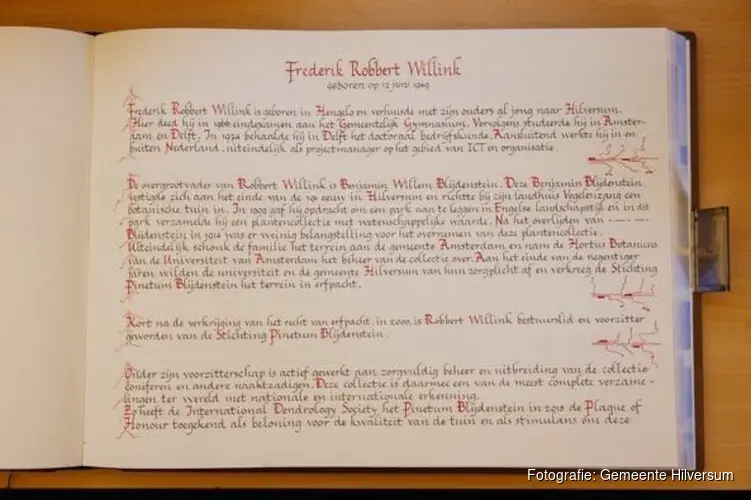 Frederik Robbert Willink
geboren op 12 juni 1949
Frederik Robbert Willink is geboren in Hengelo en verhuisde met zijn ouders al jong naar Hilversum.
Hier deed hij in 1966 eindexamen aan het Gemeentelijk Gymnasium. Vervolgens studeerde hij in Amster-
dam en Delft. In 1974 behaalde hij in Delft het doctoraal bedrijfskunde. Aansluitend werkte hij in en
buiten Nederland, uiteindelijk als projectmanager op het gebied van ICT en organisatie.
De overgrootvader van Robbert Willink is Benjamin Willem Blijdenstein. Deze Benjamin Blijdenstein
vestigde zich aan het einde van de 19e eeuw in Hilversum en richtte bij zijn landhuis Vogelenzang een
botanische tuin in. In 1909 gaf hij opdracht om een park aan te leggen in Engelse landschapstijl en in dit
park verzamelde hij een plantencollectie met wetenschappelijke waarde. Na het overlijden van
Blijdenstein in 1914 was er weinig belangstelling voor het overnemen van deze plantencollectie.
Uiteindelijk schonk de familie het terrein aan de gemeente Amsterdam en nam de Hortus Botanicus
van de Universiteit van Amsterdam het beheer van de collectie over. Aan het einde van de negentiger
jaren wilden de universiteit en de gemeente Hilversum van hun zorgplicht af en verkreeg de Stichting
Pinetum Blijdenstein het terrein in erfpacht.
Kort na de verkrijging van het recht van erfpacht, in 2000, is Robbert Willink bestuurslid en voorzitter
geworden van de Stichting Pinetum Blijdenstein.
Onder zijn voorzitterschap is actief gewerkt aan zorgvuldig beheer en uitbreiding van de collectie
coniferen en andere naaktzadigen. Deze collectie is daarmee een van de meest complete verzame-
lingen ter wereld met nationale en internationale erkenning.
Zo heeft de International Dendrology Society het Pinetum Blijdenstein in 2018 de Plaque of
Honour toegekend als beloning voor de kwaliteit van de tuin en als stimulans om deze
Fotografie: Gemeente Hilversum